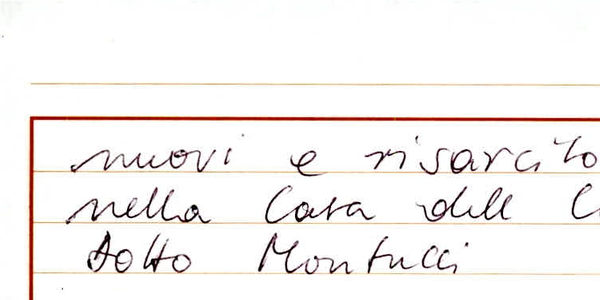 nuovi e risarcito
nella Casa dell
dotto Montucci